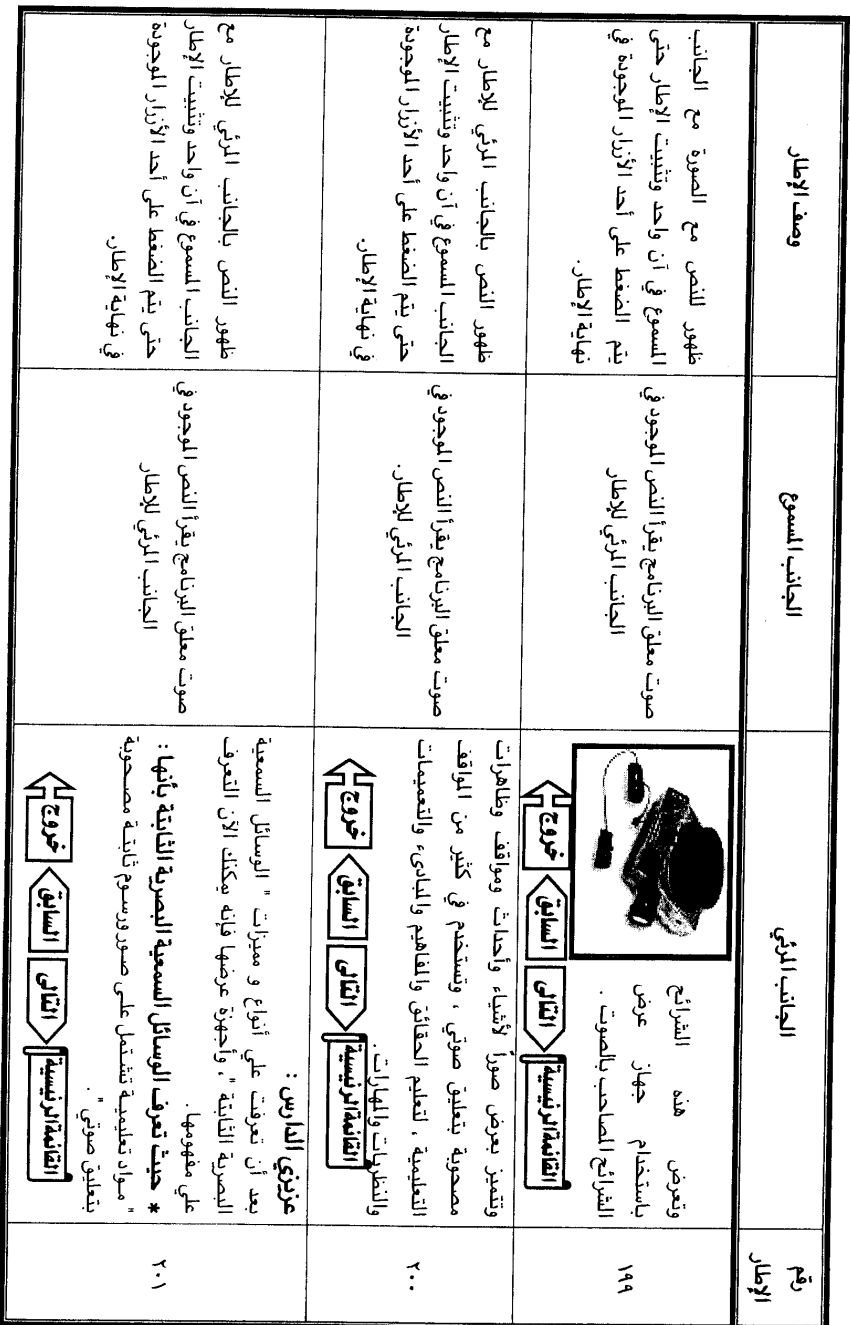 رقم
الإطار
الجانب المرئي
الجانب المسموع
وصف الإطار
١٩٩
وتعرض هذه الشرائح
باستخدام جهاز عرض
الشرائح المصاحب بالصوت.
القائمة الرئيسية
التالى
السابق
خروج
صوت معلق البرنامج يقرأ النص الموجود في
الجانب المرئي للإطار
ظهور للنص مع الصورة مع الجانب
المسموع في آن واحد وتثبيت الإطار حتى
يتم الضغط على أحد الأزرار الموجودة في
نهاية الإطار.
٢٠٠
وتتميز بعرض صوراً لأشياء وأحداث ومواقف وظاهرات
مصحوبة بتعليق صوتي ، وتستخدم في كثير من المواقف
التعليمية ، لتعليم الحقائق والمفاهيم والمبادىء والتعميمات
والنظريات والمهارات.
القائمة الرئيسية
التالى
السابق
خروج
صوت معلق البرنامج يقرأ النص الموجود في
الجانب المرئي للإطار.
ظهور النص بالجانب المرئي للإطار مع
الجانب المسموع في آن واحد وتثبيت الإطار
حتى يتم الضغط على أحد الأزرار الموجودة
في نهاية الإطار.
٢٠١
عزيزي الدارس :
بعد أن تعرفت على أنواع و مميزات " الوسائل السمعية
البصرية الثابتة " ، وأجهزة عرضها فإنه يمكنك الآن التعرف
علي مفهومها .
* حيث تعرف الوسائل السمعية البصرية الثابتة بأنها :
" مـواد تعليميـة تشـتمل علـى صـور ورسـوم ثابتـة مصـحوبة
بتعليق صوتي " .
القائمة الرئيسية
التالى
السابق
خروج
صوت معلق البرنامج يقرأ النص الموجود في
الجانب المرئي للإطار
ظهور النص بالجانب المرئي للإطار مع
الجانب المسموع في آن واحد وتثبيت الإطار
حتى يتم الضغط على أحد الأزرار الموجودة
في نهاية الإطار.